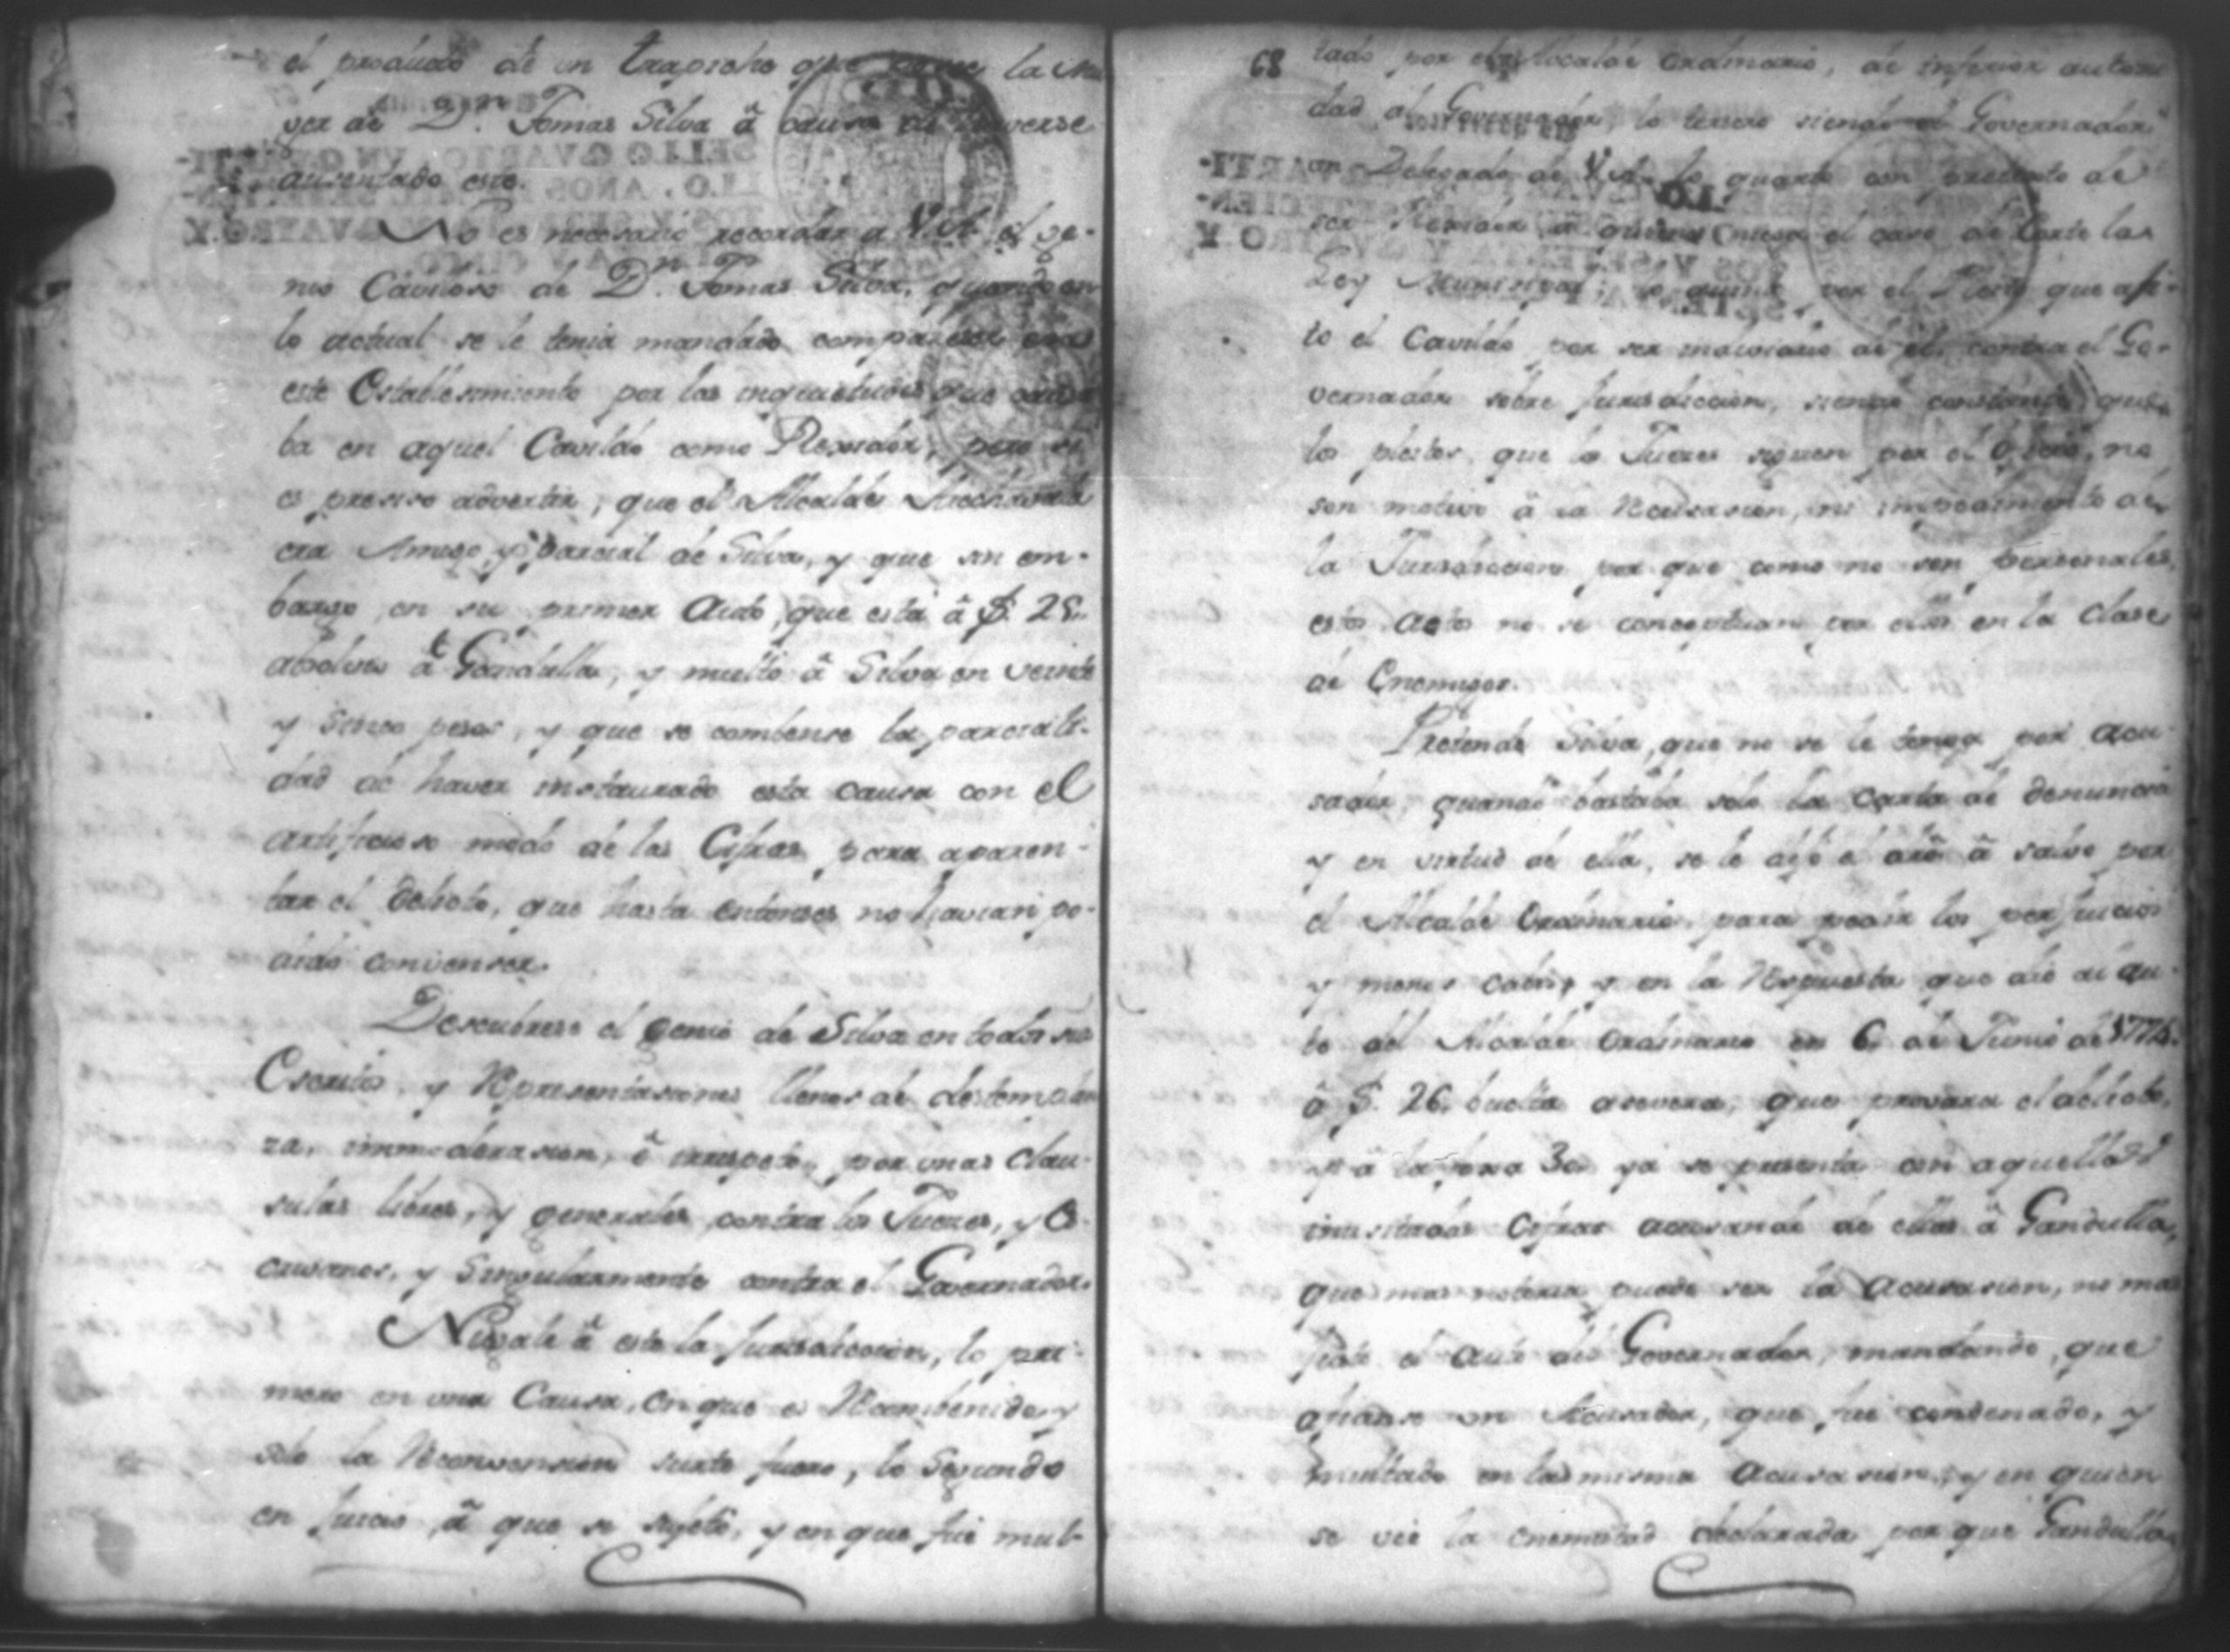 el producto de un trapiche que tiene la mu-
ger de Dn. Tomas Silva â causa de haverse
ausentado este.
No es necesario recordar a V.A. el ge-
nio Caviloso de Dn. Tomas Silva, quando en
lo actual se le tenia mandado comparecer en
este Establesimiento por las inquietudes que
ba en aquel Cavildo como Rexidor, pero si
es presiso advertir, que el Alcalde
era Amigo, y parcial de Silva, y que sin em-
bargo en su primer Auto, que està â f. 25.
absolvio â Gandulla, y multò â Silva en veinte
y sinco pesos, y que se combense la parciali-
dad de haver instaurado esta causa con el
artificioso modo de las Cifras para aparen-
tar el delicto, que hasta entonses no havian po-
dido convenser.
Descubrese el genio de Silva en todos sus
Escritos, y Representasiones llenos de destemplan
za, immoderasion, ê irrespeto, por unas Clau-
sulas libres, y generales contra los Jueses, y E-
cusanos, y Singularmente contra el Governador.
Niegale â este la Jurisdiccion, lo pri-
mero en una Causa, en que es Recombenido, y
solo la Reconvension surte fuero, lo Segundo
en Juicio, â que se sujetò, y en que fuè mul-
68 tado por el Alcalde Ordinario, de inferior autori
dad al Governador, lo tersero siendo el Governador
un Delegado de V.A. lo quarto con pretexto de
ser Rexidor, a quienes el caso de Corte la
Ley Municipal; lo quinto por el Pleito que asis-
to el Cavildo por ser de el, contra el Go-
vernador sobre Jurisdiccion, siendo constante, que
los pleitos, que los Jueses siguen por el Oficio, no
son motivo â la Recusasion, ni impedimento de
la Jurisdiccion por que como no son personales
estos actos no se conceptuan por ellos en la Clase
de Enemigos.
Pretende Silva, que no se le tenga por acu-
sador, quando bastaba solo la Carta de denuncia
y en virtud de ella, se le dejò el dro â salvo por
el Alcalde Ordinario, para pedir los perjuicios
y menos cabos, y en la Respuesta que diò al Au-
to del Alcalde Ordinario en 6 de Junio de 1774.
â f. 26. buelta asevera, que provara el delicto,
y â la foxa 30. ya se presenta con aquellas
inusitadas Cifras acusando de ellas â Gandulla,
que mas notoria puede ser la Acusasion, ni mas
justo el Auto del Governador, mandando, que
afianse un Acusador, que fuè condenado, y
multado en la misma Acusasion, y en quien
se vio la enemistad declarada por que Gandulla